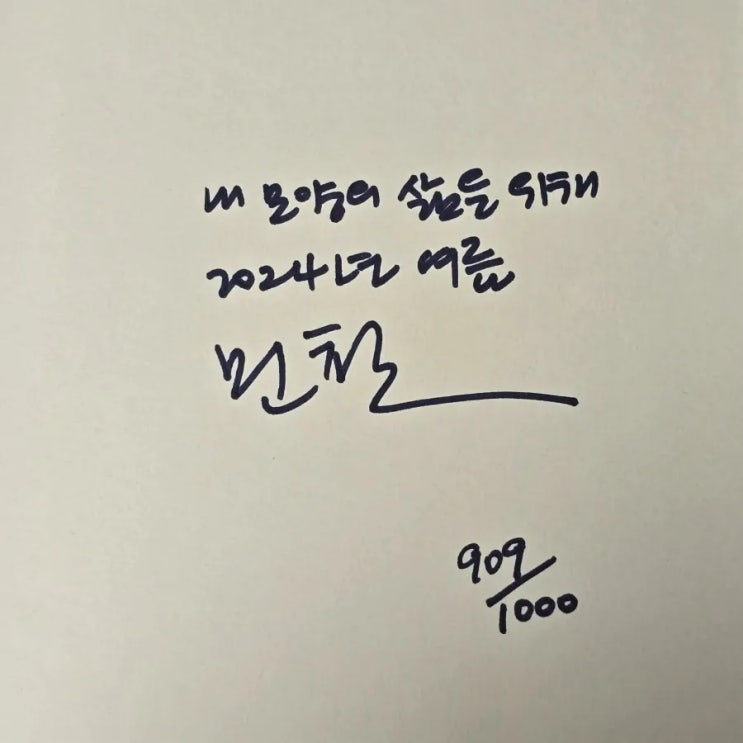 내 모양의 삶을 위해
2024년 여름
민철
909/1000